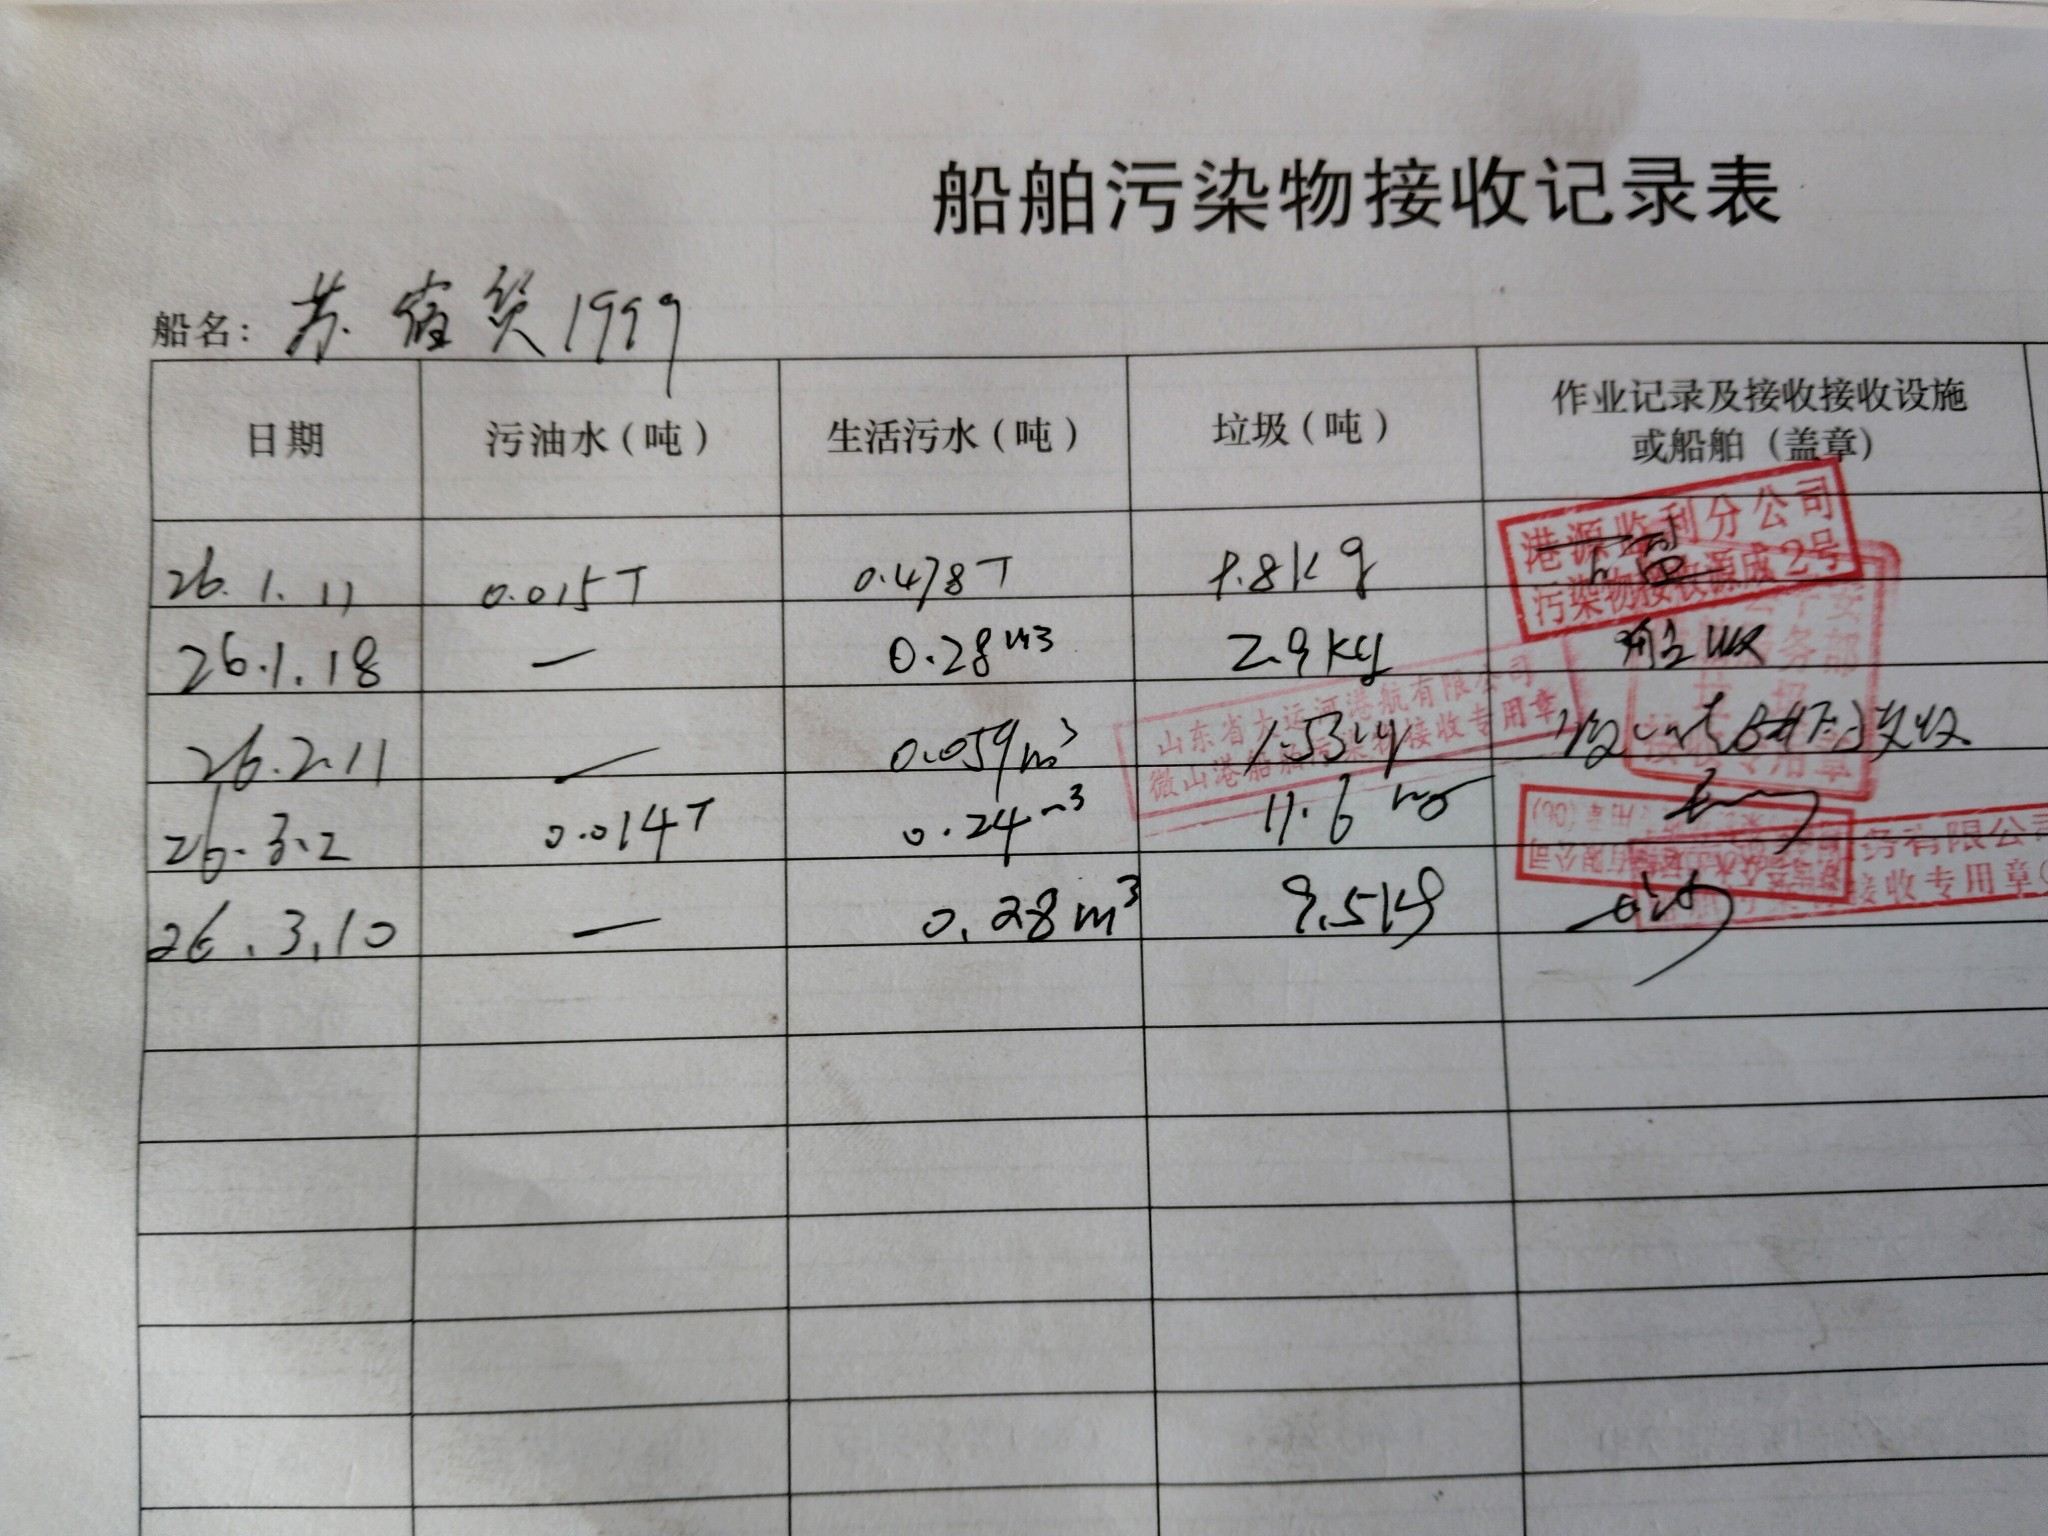 船舶污染物接收记录表
船名: 苏宿货1999
日期 污油水(吨) 生活污水(吨) 垃圾(吨) 作业记录及接收接收设施
或船舶(盖章)
港源监利分公司
污染物接收源成2号
26.1.11 0.015T 0.478T 1.8kg
26.1.18 — 0.28m3 2.9kg
山东省大运河港航有限公司
微山港船舶污染物接收专用章
26.2.11 — 0.059m³
26.3.2 0.014T 0.24m3 11.6
务有限公司
接收专用章
26.3.10 — 0.28m³ 9.5kg